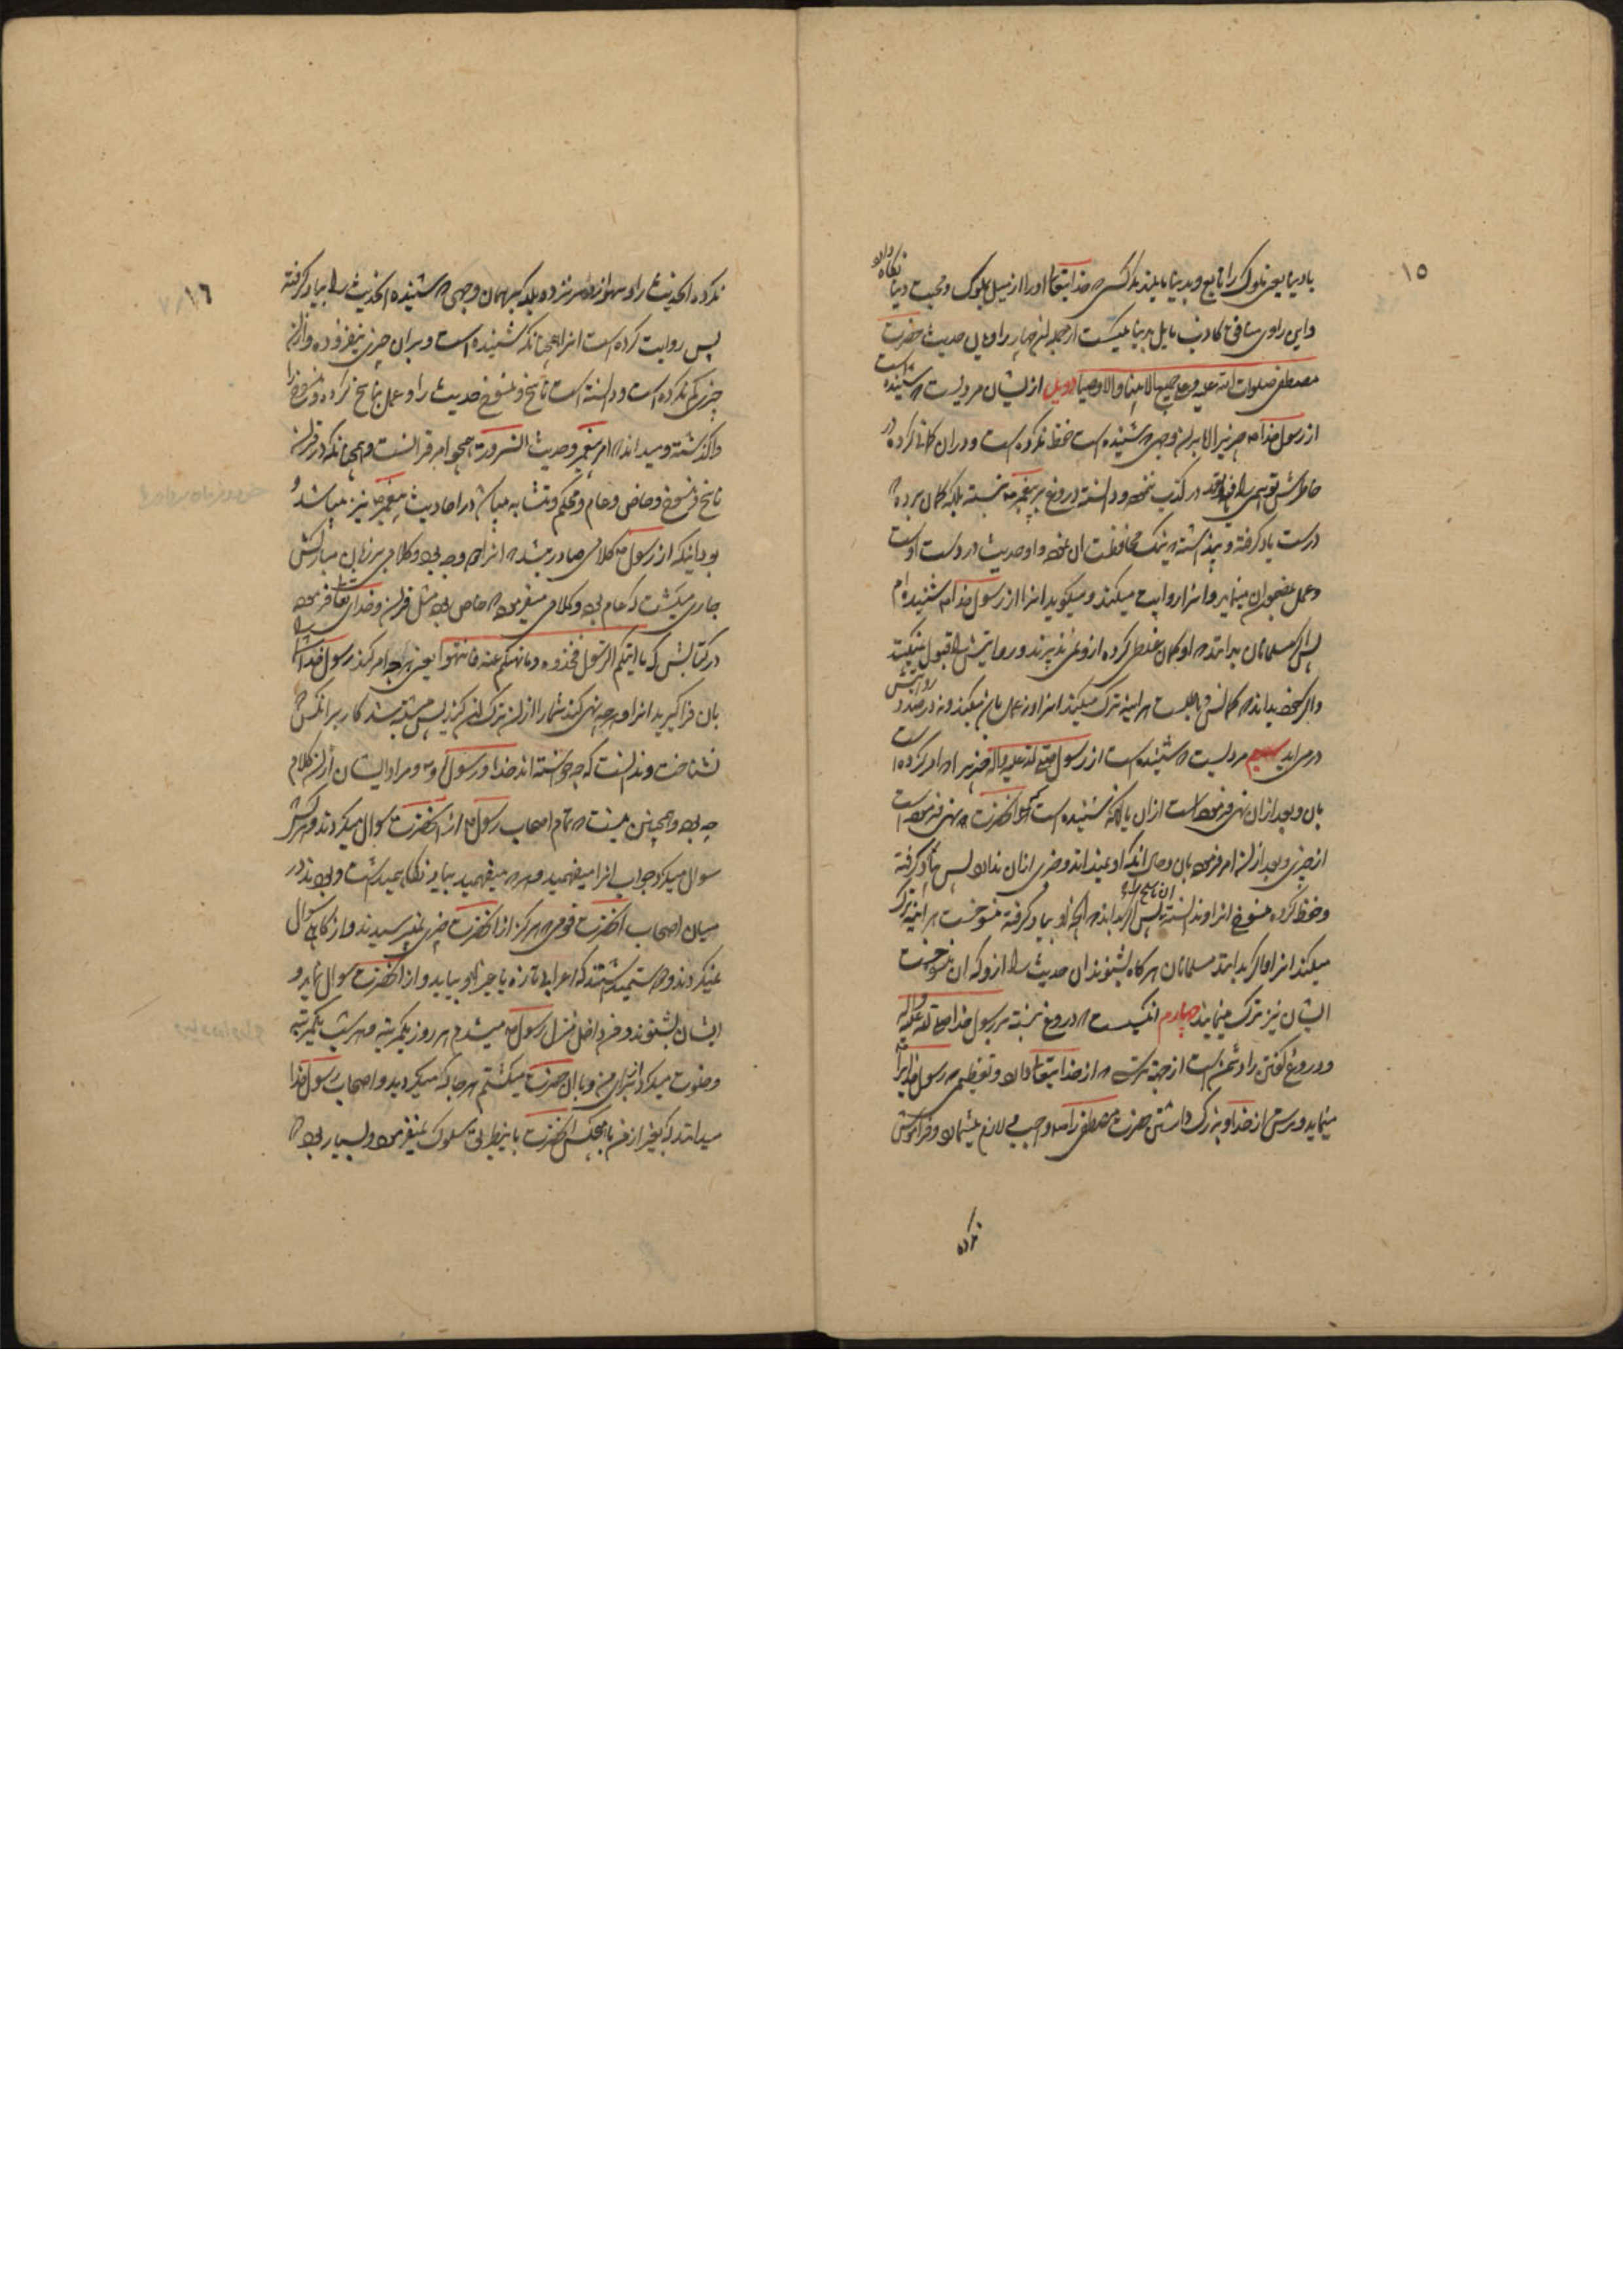 ۱۵
با دنیا یعنی ملوک را تابع و بدنیا مایلند مگر کسی که خدایتعالی او را از میل بملوک و محبت دنیا نگاه دارد
و این راوی منافق کاذب مایل بدنیا یکیست از جمله این چهار راویان حدیث حضرت
مصطفی صلوات الله علیه و علی جمیع الانبیاء و الاوصیا دویم از ایشان مردیست که شنیده است
از رسول خدا ص چیزیرا اما بران وجهی که شنیده است حفظ نکرده است و دران کاتی کرده در
خاطرش توهمی راه در کذب نبوده و دانسته دروغ بر پیغمبر ص نبسته بلکه گمان برده که
درست یاد گرفته و پنداشته که نیک محافظت ان نموده و او حدیث در دست اوست
و عمل بمضمون ان مینماید و انرا روایت میکند و میگوید انرا از رسول خدا ص شنیده ام
پس اگر مسلمانان بدانند که او گمان غلط کرده از وی نمی پذیرند و روایتش را قبول نمیکنند
و اگر خود بداند که گمانش باطلست هر اینه ترک میکند انرا و نه عمل بان میکند و نه در صدد روایتش
در می اید سیم مردیست که شنیده است از رسول صلی الله علیه و اله چیزیرا که امر کرده است
بان و بعد ازان نهی فرموده است ازان یا انکه شنیده است که انحضرت ص نهی فرموده است
از چیزی و بعد ازان امر فرموده بان و حال انکه او نمیداند و خبری ازان ندارد پس یاد گرفته
و حفظ کرده منسوخ انرا و ندانسته ان ناسخ را پس اگر بداند که انچه او یاد گرفته منسوخست هر اینه ترک
میکند انرا و اگر بدانند مسلمانان هرگاه بشنوند ان حدیث را ازو که ان منسوخست
ایشان نیز ترک مینمایند چهارم انکسیست که دروغ نبسته بر رسول خدا صلی الله علیه و اله
و دروغ گفتن را دشمن است از جهة ترسی که از خدایتعالی دارد و تعظیمی که رسول خدا را
مینماید و ترس از خدا و بزرگ داشتن حضرت مصطفی را ص واجب و لازم میشمارد و فراموش
نکرده
۱۶
نکرده انحدیث را و سهو ازو سر نزده بلکه بهمان وجهی که شنیده انحدیث را بیاد گرفته
پس روایت کرده است انرا همچنانکه شنیده است و بران چیزی نیفزوده و ازان
چیزی کم نکرده است و دانسته است ناسخ و منسوخ حدیث را و عمل بناسخ کرده و منسوخ را
واگذاشته و میداند که امر پیغمبر و حدیث انسرور ص همچو امر قرانست و همچنانکه در قران
ناسخ و منسوخ و خاص و عام و محکم و متشابه میباشد در احادیث پیغمبر ص نیز میباشد و
بود اینکه از رسول ص کلامی صادر میشد که انرا دو وجه بود و کلامی بر زبان مبارکش
جاری میگشت که عام بود و کلامی میفرمود که خاص بود مثل قران و خدای تعالی فرموده است
در کتابش که ما اتیکم الرسول فخذوه و ما نهیکم عنه فانتهوا یعنی هرچه امر کند رسول خدا شما را
بان فرا گیرید انرا و هرچه نهی کند شما را ازان ترک ان کنید پس مشتبه شد کار بر انکس که
نشناخت و ندانست که چه خواسته اند خدا و رسول او ص و مراد ایشان ازان کلام
چه بود و همچنین نیست که تمام اصحاب رسول ص که از انحضرت سوال میکردند و هرکس
سوال میکرد جواب انرا میفهمید و هر که میفهمید بیاد نگاه میداشت و بودند در
میان اصحاب انحضرت قومی که هرگز از انحضرت چیزی نمیپرسیدند و ازکاهی سوال
نمیکردند و دوست میداشتند که اعرابی تازه یا جز او بیاید و از انحضرت سوال نماید و
ایشان بشنوند و من داخل منزل رسول ص میشدم هر روز یکمرتبه و هر شب یکمرتبه
و خلوت میکرد از برای من و با ان حضرت میگشتم هر جا که میگردید و اصحاب رسول خدا
میدانند که بغیر از من با هیچکس انحضرت باینطریق سلوک نمیفرمود و بسیار بود که